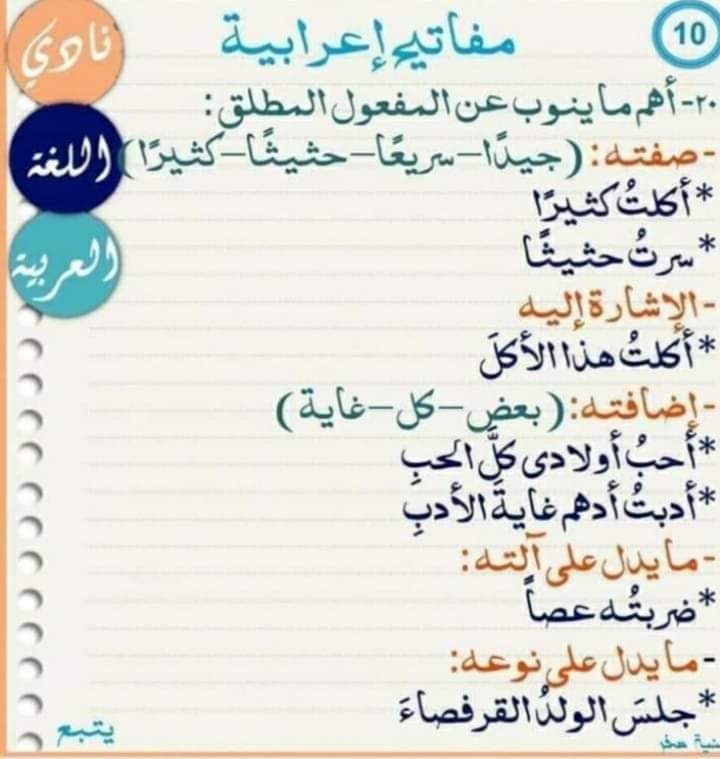 10
مفاتيح إعرابية
نادي
اللغة
العربية
٢٠-أهم ما ينوب عن المفعول المطلق:
-صفته:(جيدًا-سريعًا-حثيثًا-كثيرًا)
*أكلتُ كثيرًا
*سرتُ حثيثًا
-الإشارة إليه
*أكلتُ هذا الأكلَ
-إضافته:(بعض-كل-غاية)
*أحبُ أولادى كلَّ الحبِ
*أدبتُ أدهم غايةَ الأدبِ
-ما يدل على آلته:
*ضربتُه عصاً
-ما يدل على نوعه:
*جلسَ الولدُ القرفصاءَ
يتبع